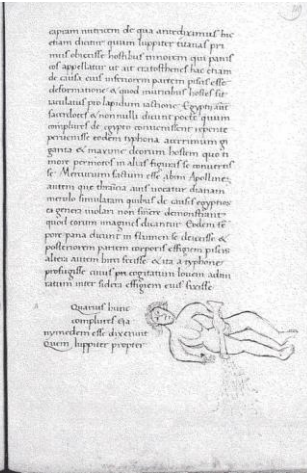 capram nutricem de qua ante diximus hic
etiam dicitur quum iuppiter titanas pri
mus obiceret hostibus timorem qui panis
cos appellatur ut ait eratosthenes hac etiam
de causa eius inferiorem partem piscis esse
deformatione & quod muricibus hostes sit
iaculatus pro lapidum iactione Egyptii aut
sacerdotes & nonnulli dicunt poete quum
complures de egypto convenissent repente
pervenisse eodem typhona acerrimum gi
ganta & maxime deorum hostem quo ti
more permotos in alias figuras se convertis
se Mercurium factum esse ibim Apolline
autem que thraicia avis vocatur dianam
merulo simulatam quibus de causis egyptios
ea genera violari non sinere demonstrant
quod eorum imagines dicantur Eodem tē
pore pana dicunt in flumen se deiecisse &
posteriorem partem corporis effigiem piscis
altera autem hirci fecisse & ita a typhone
profugisse cuius pro cogitatum iovem admi
ratum inter sidera effigiem eius fixisse
Quamvis hunc
complures ga
nymedem esse dixerunt
Quem iuppiter propter